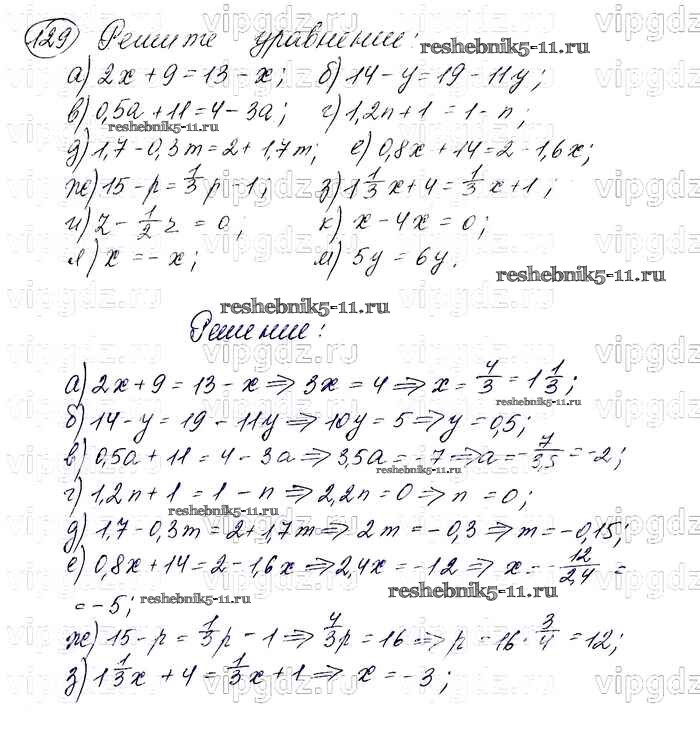 129 Решите уравнение: reshebnik5-11.ru
а) 2x + 9 = 13 - x; б) 14 - y = 19 - 11y;
в) 0,5a + 11 = 4 - 3a; г) 1,2n + 1 = 1 - n;
reshebnik5-11.ru
д) 1,7 - 0,3m = 2 + 1,7m; е) 0,8x + 14 = 2 - 1,6x;
ж) 15 - p = 1/3 p - 1; з) 1 1/3 x + 4 = 1/3 x + 1;
и) z - 1/2 z = 0; к) x - 4x = 0;
л) x = -x; м) 5y = 6y.
reshebnik5-11.ru
reshebnik5-11.ru
Решение:
а) 2x + 9 = 13 - x ⇒ 3x = 4 ⇒ x = 4/3 = 1 1/3;
reshebnik5-11.ru
б) 14 - y = 19 - 11y ⇒ 10y = 5 ⇒ y = 0,5;
в) 0,5a + 11 = 4 - 3a ⇒ 3,5a = -7 ⇒ a = -7/3,5 = -2;
reshebnik5-11.ru
г) 1,2n + 1 = 1 - n ⇒ 2,2n = 0 ⇒ n = 0;
reshebnik5-11.ru
д) 1,7 - 0,3m = 2 + 1,7m ⇒ 2m = -0,3 ⇒ m = -0,15;
е) 0,8x + 14 = 2 - 1,6x ⇒ 2,4x = -12 ⇒ x = -12/2,4 =
= -5; reshebnik5-11.ru reshebnik5-11.ru
ж) 15 - p = 1/3 p - 1 ⇒ 4/3 p = 16 ⇒ p = 16 · 3/4 = 12;
з) 1 1/3 x + 4 = 1/3 x + 1 ⇒ x = -3;
reshebnik5-11.ru
vipgdz.ru